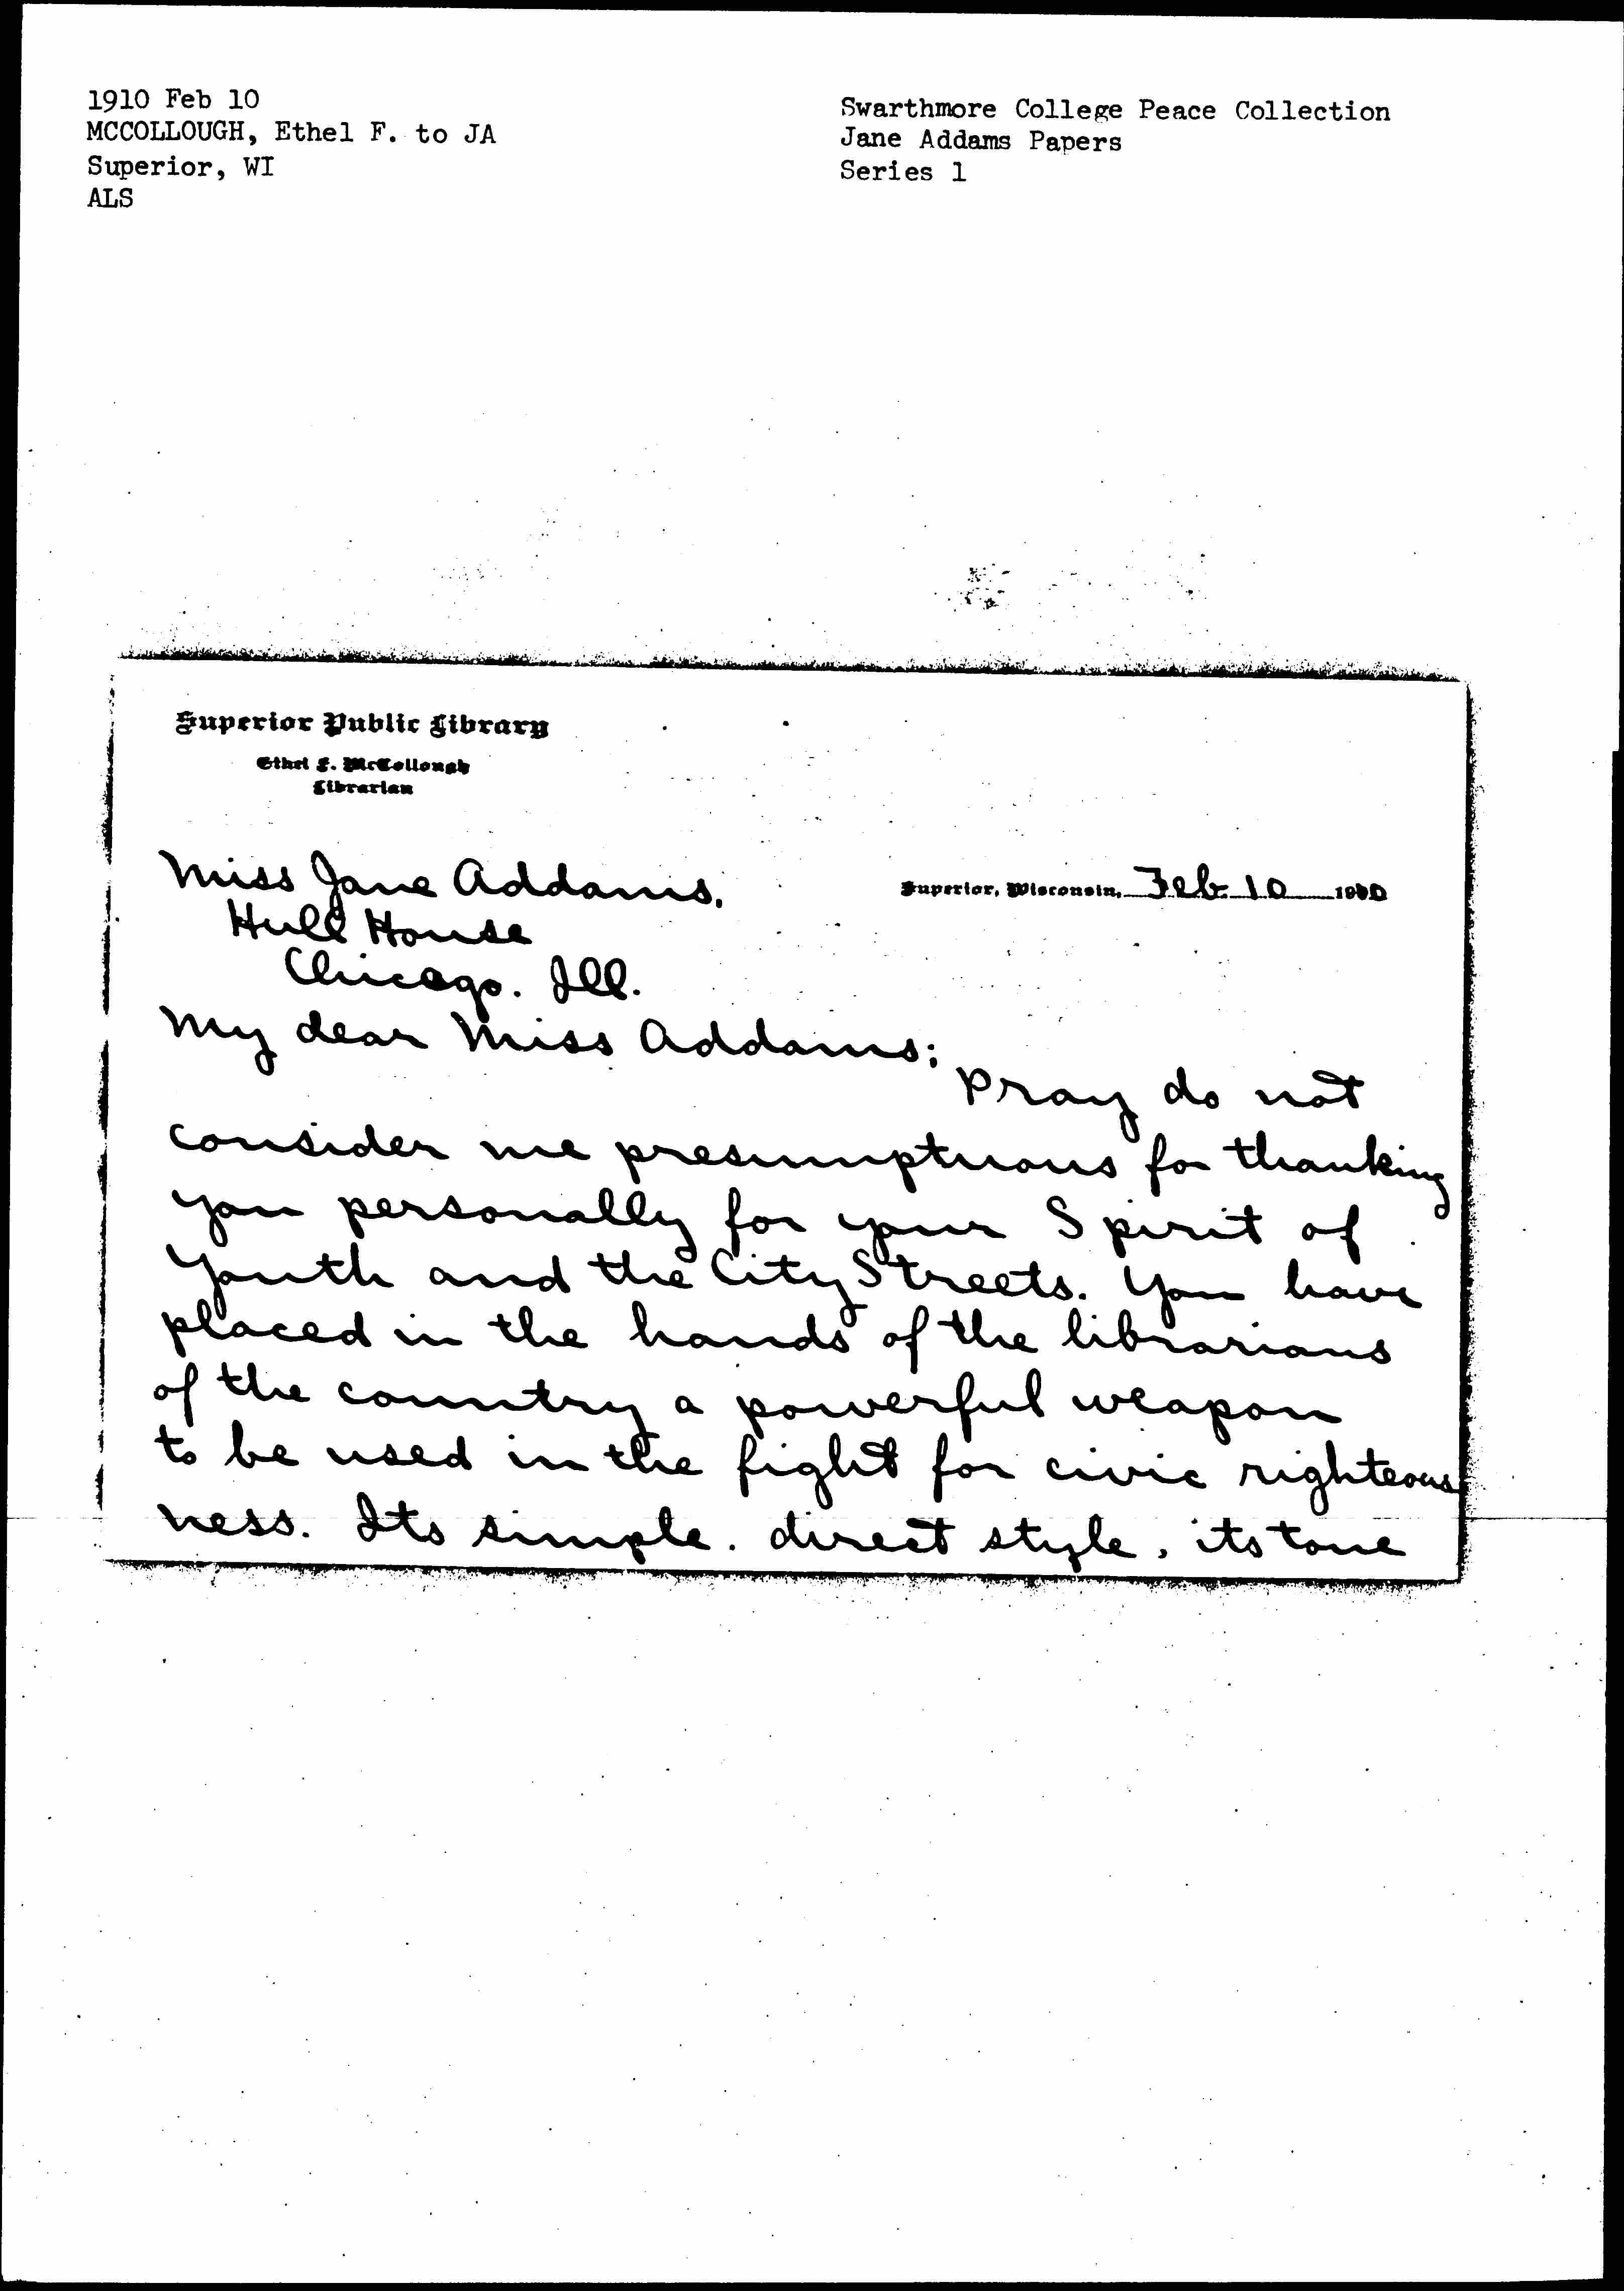 1910 Feb 10
MCCOLLOUGH, Ethel F. to JA
Superior, WI
ALS
Swarthmore College Peace Collection
Jane Addams Papers
Series 1
Superior Public Library
Ethel F. McCollough
Librarian
Miss Jane Addams.
Superior, Wisconsin, Feb. 10 1910
Hull House
Chicago. Ill.
My dear Miss Addams:
Pray do not
consider me presumptuous for thanking
you personally for your Spirit of
Youth and the City Streets. You have
placed in the hands of the librarians
of the country a powerful weapon
to be used in the fight for civic righteous
ness. Its simple. direct style, its tone